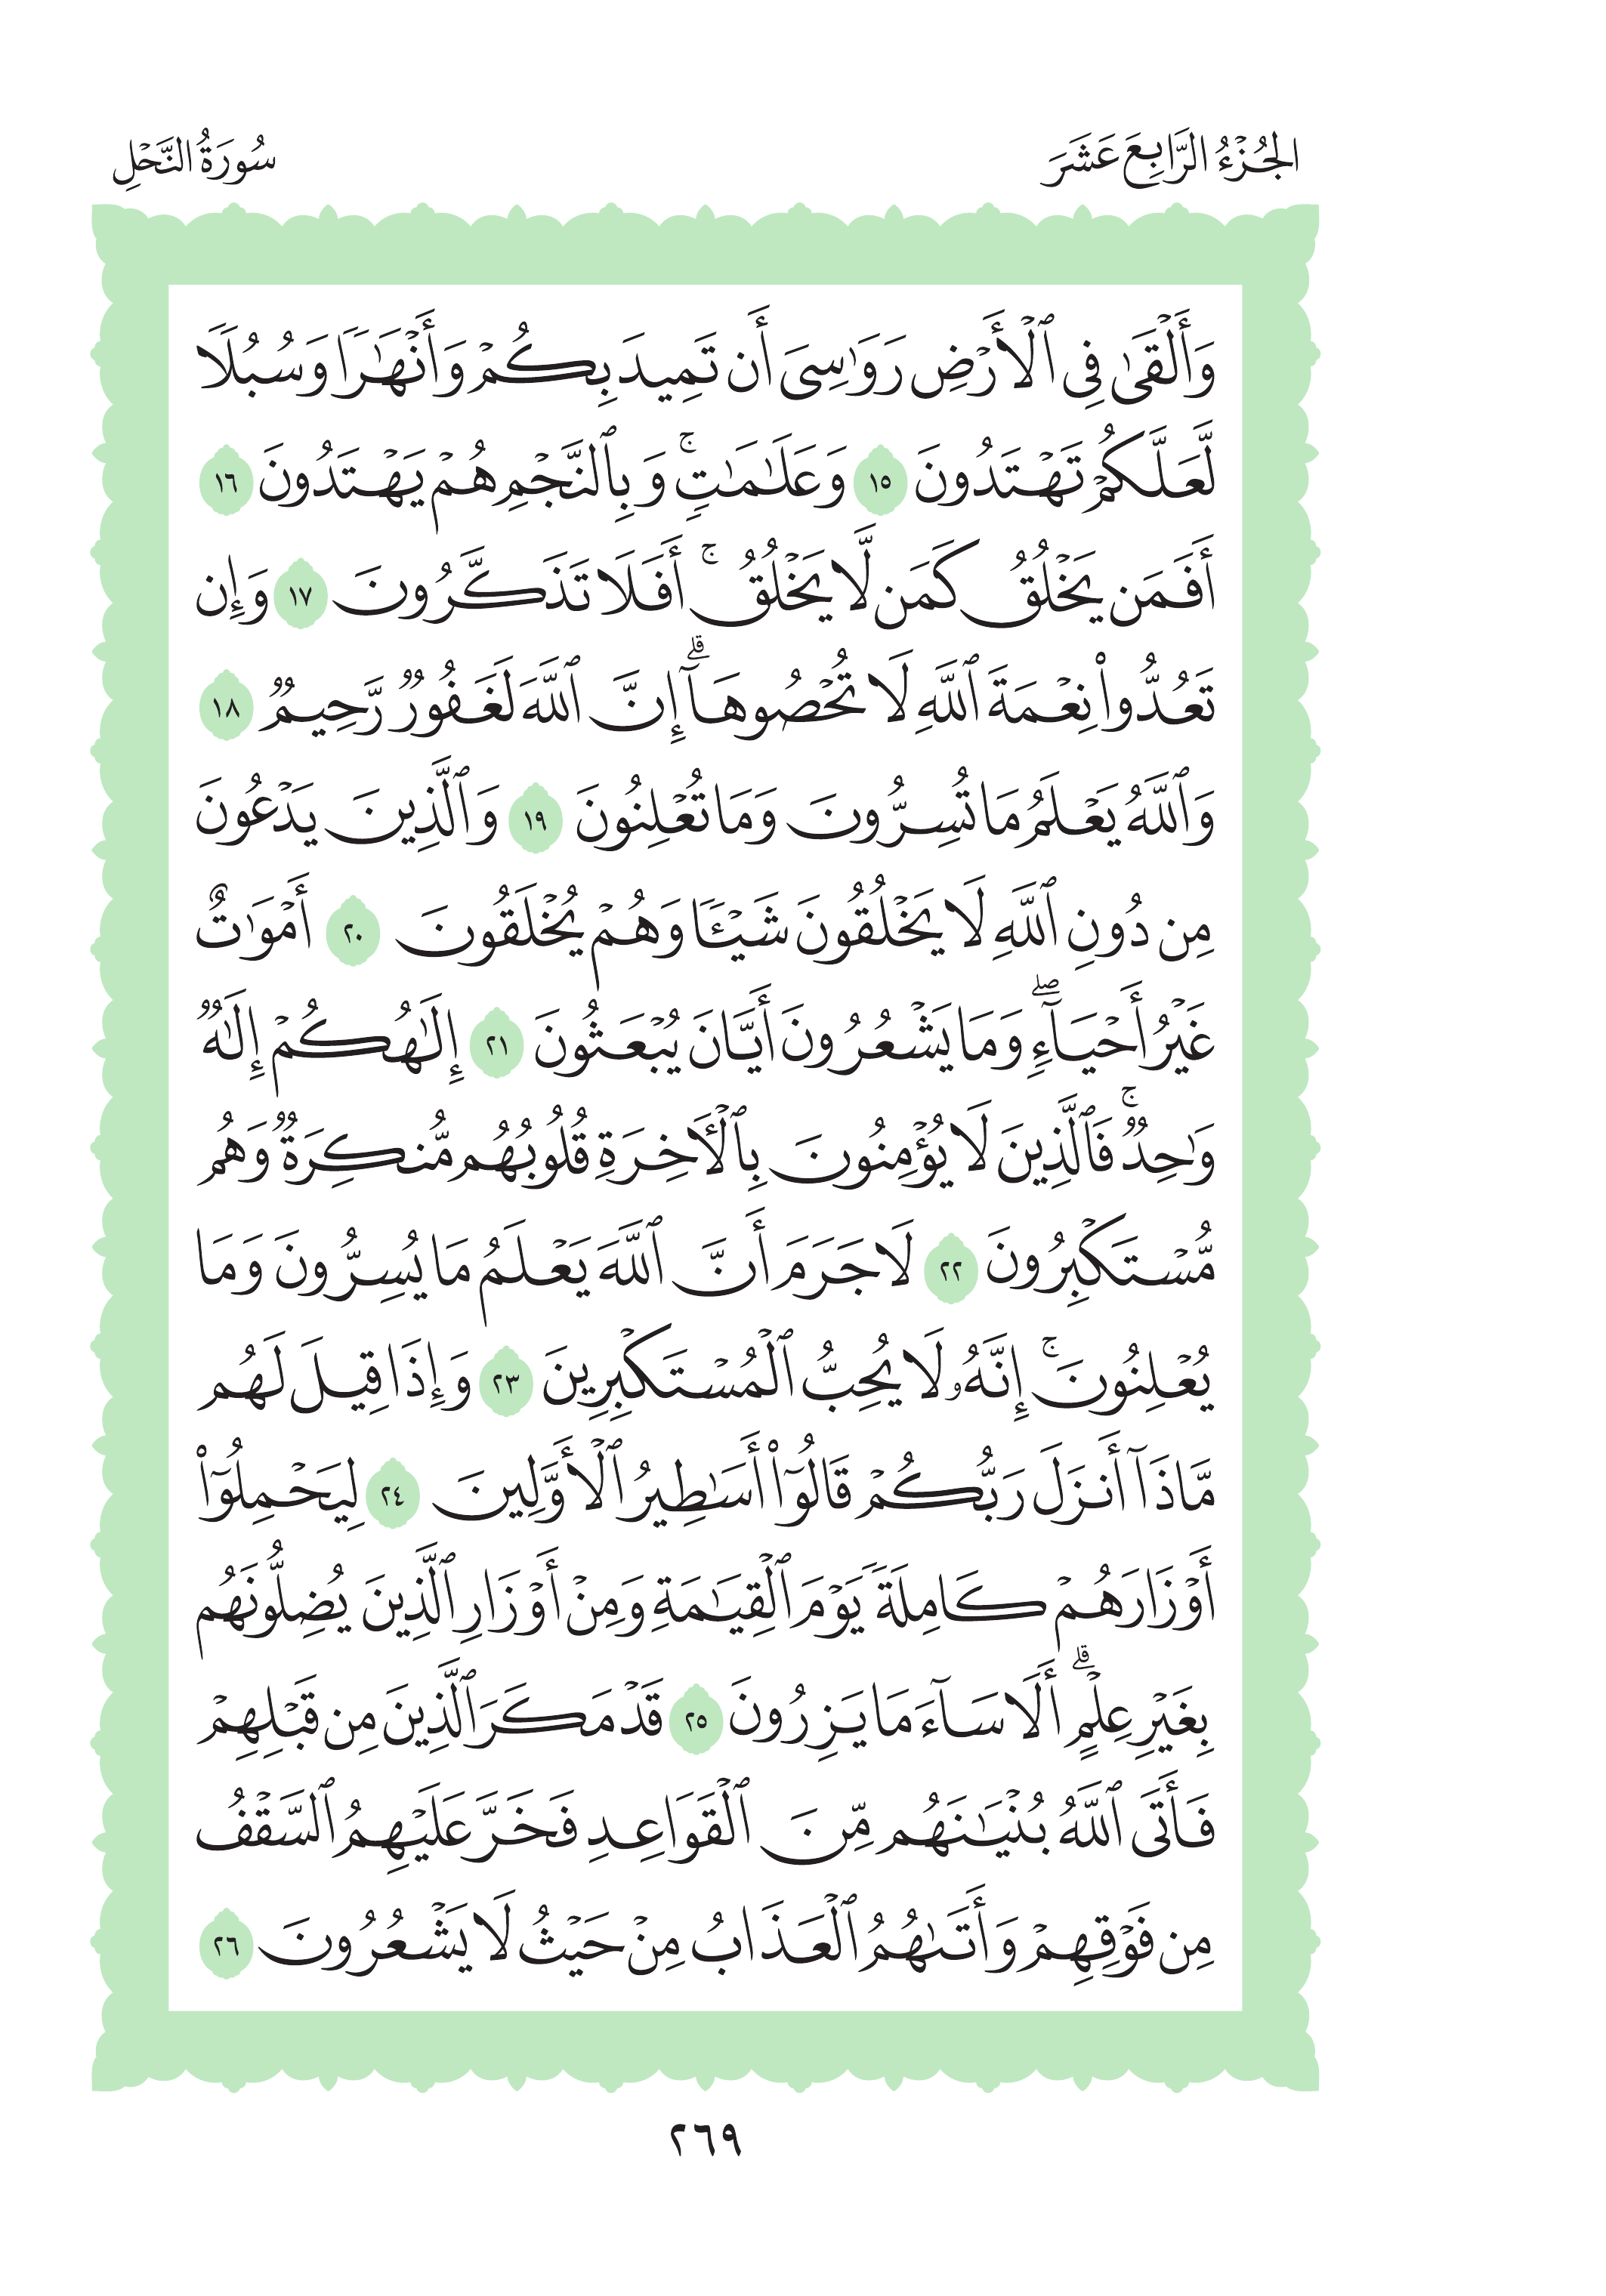 الجُزْءُ الرَّابِعَ عَشَرَ
سُورَةُ النَّحْلِ
وَأَلۡقَىٰ فِي ٱلۡأَرۡضِ رَوَٰسِيَ أَن تَمِيدَ بِكُمۡ وَأَنۡهَٰرٗا وَسُبُلٗا
لَّعَلَّكُمۡ تَهۡتَدُونَ ١٥ وَعَلَٰمَٰتٖۚ وَبِٱلنَّجۡمِ هُمۡ يَهۡتَدُونَ ١٦
أَفَمَن يَخۡلُقُ كَمَن لَّا يَخۡلُقُۚ أَفَلَا تَذَكَّرُونَ ١٧ وَإِن
تَعُدُّواْ نِعۡمَةَ ٱللَّهِ لَا تُحۡصُوهَآۗ إِنَّ ٱللَّهَ لَغَفُورٞ رَّحِيمٞ ١٨
وَٱللَّهُ يَعۡلَمُ مَا تُسِرُّونَ وَمَا تُعۡلِنُونَ ١٩ وَٱلَّذِينَ يَدۡعُونَ
مِن دُونِ ٱللَّهِ لَا يَخۡلُقُونَ شَيۡـٔٗا وَهُمۡ يُخۡلَقُونَ ٢٠ أَمۡوَٰتٌ
غَيۡرُ أَحۡيَآءٖۖ وَمَا يَشۡعُرُونَ أَيَّانَ يُبۡعَثُونَ ٢١ إِلَٰهُكُمۡ إِلَٰهٞ
وَٰحِدٞۚ فَٱلَّذِينَ لَا يُؤۡمِنُونَ بِٱلۡأٓخِرَةِ قُلُوبُهُم مُّنكِرَةٞ وَهُم
مُّسۡتَكۡبِرُونَ ٢٢ لَا جَرَمَ أَنَّ ٱللَّهَ يَعۡلَمُ مَا يُسِرُّونَ وَمَا
يُعۡلِنُونَۚ إِنَّهُۥ لَا يُحِبُّ ٱلۡمُسۡتَكۡبِرِينَ ٢٣ وَإِذَا قِيلَ لَهُم
مَّاذَآ أَنزَلَ رَبُّكُمۡ قَالُوٓاْ أَسَٰطِيرُ ٱلۡأَوَّلِينَ ٢٤ لِيَحۡمِلُوٓاْ
أَوۡزَارَهُمۡ كَامِلَةٗ يَوۡمَ ٱلۡقِيَٰمَةِ وَمِنۡ أَوۡزَارِ ٱلَّذِينَ يُضِلُّونَهُم
بِغَيۡرِ عِلۡمٍۗ أَلَا سَآءَ مَا يَزِرُونَ ٢٥ قَدۡ مَكَرَ ٱلَّذِينَ مِن قَبۡلِهِمۡ
فَأَتَى ٱللَّهُ بُنۡيَٰنَهُم مِّنَ ٱلۡقَوَاعِدِ فَخَرَّ عَلَيۡهِمُ ٱلسَّقۡفُ
مِن فَوۡقِهِمۡ وَأَتَىٰهُمُ ٱلۡعَذَابُ مِنۡ حَيۡثُ لَا يَشۡعُرُونَ ٢٦
٢٦٩